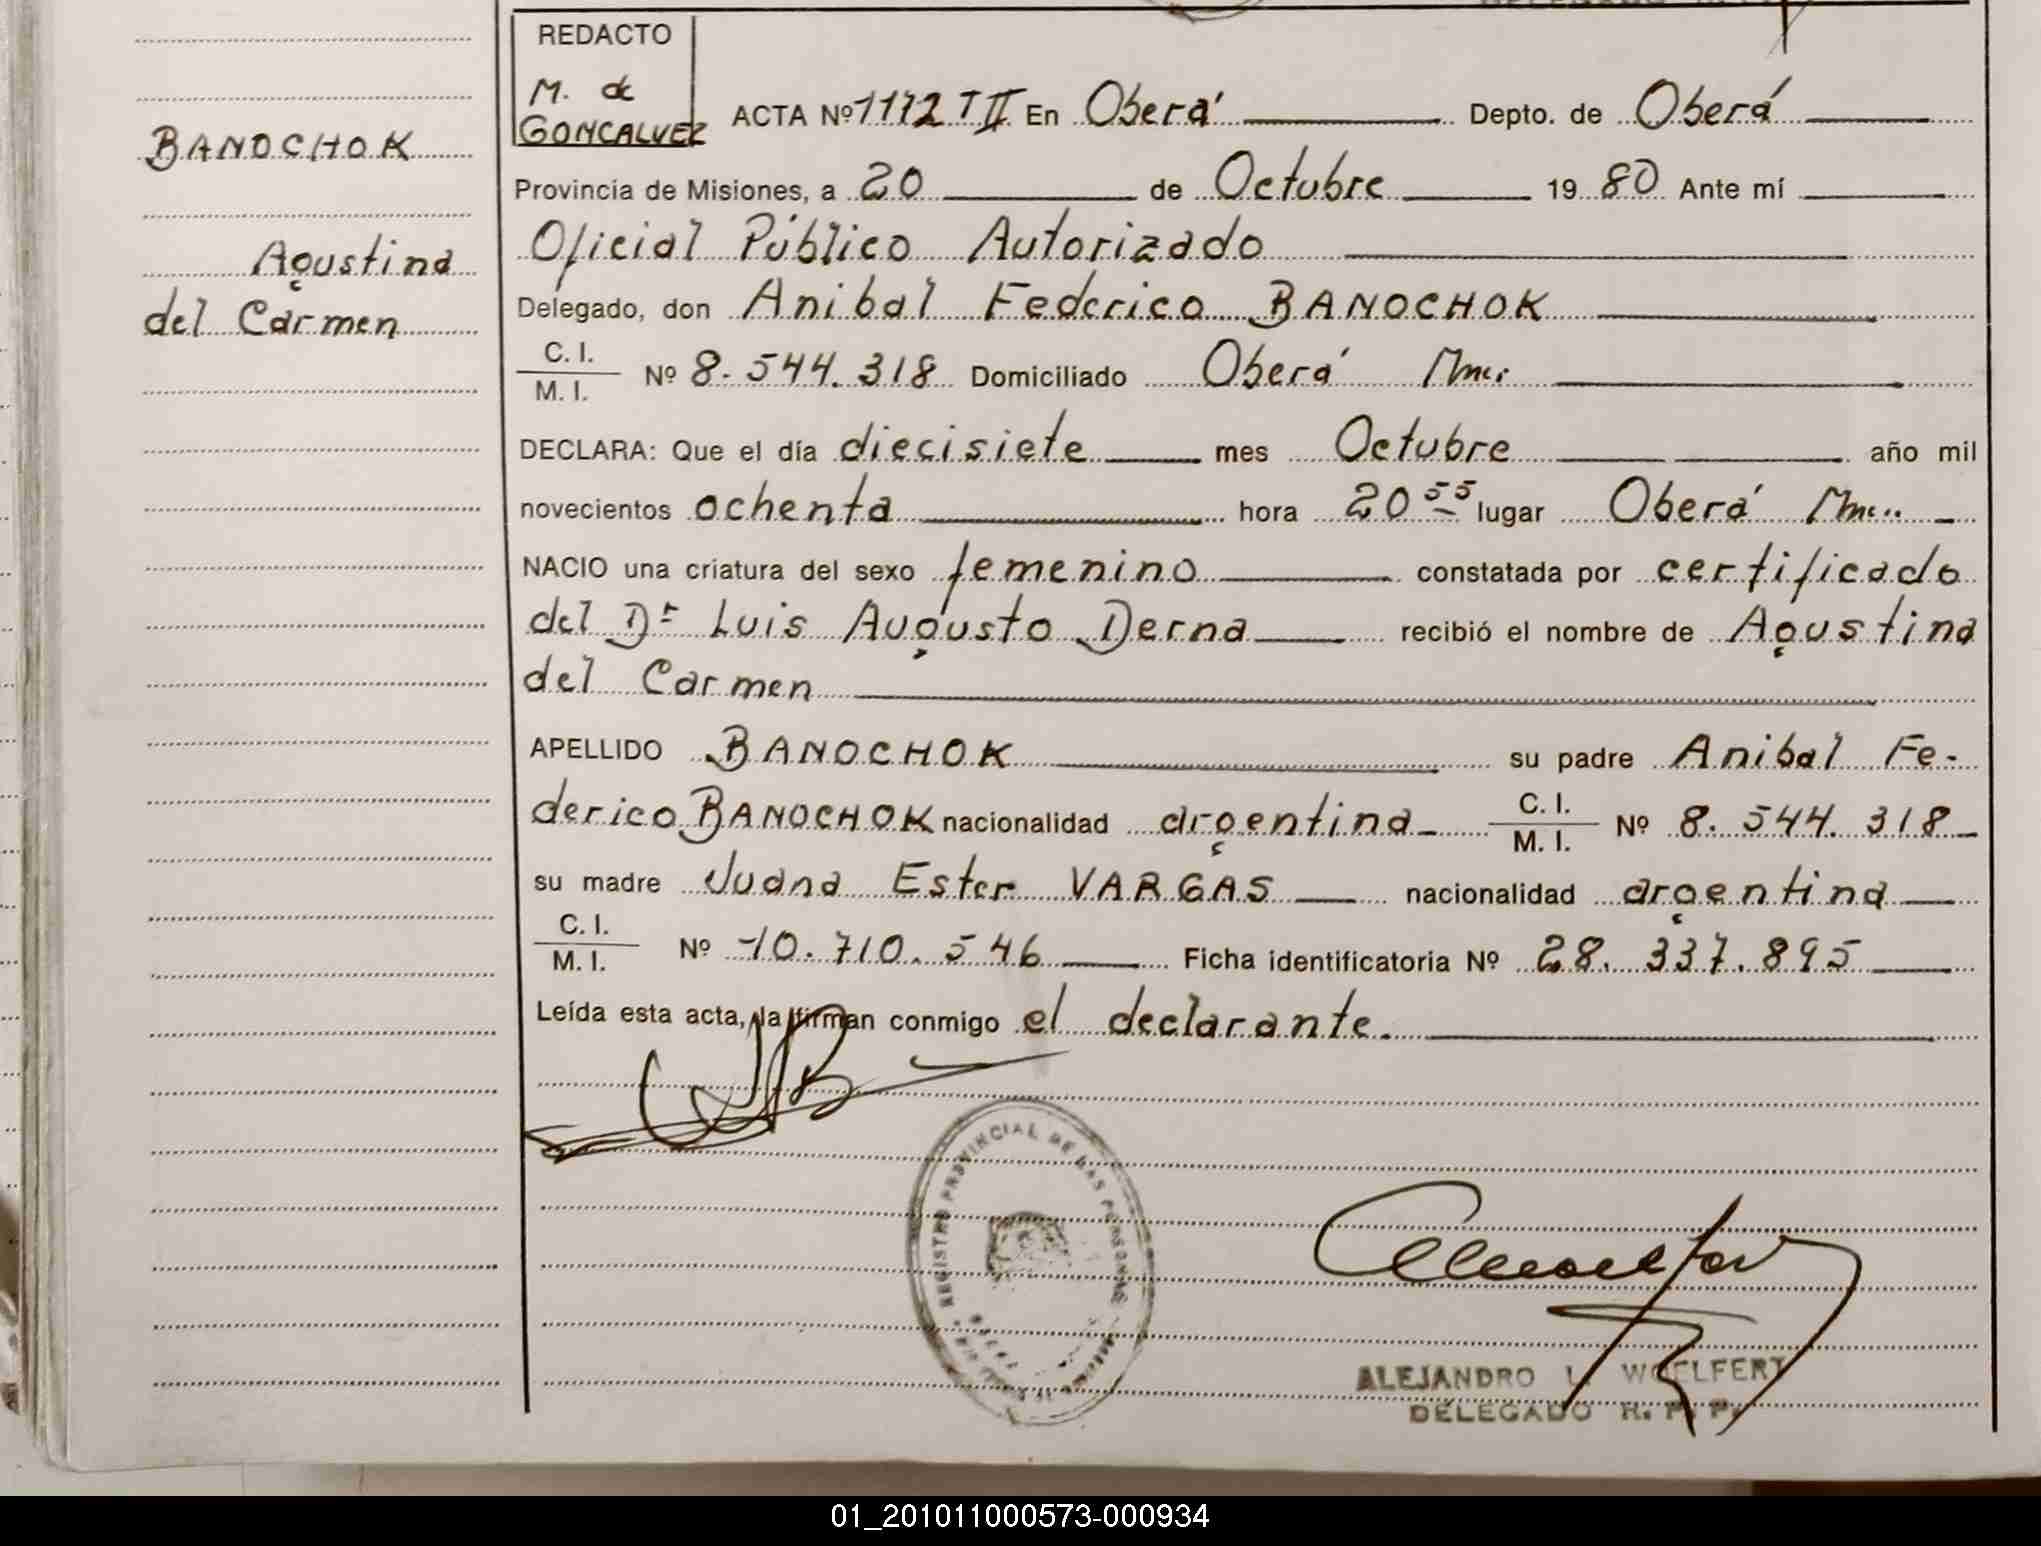 REDACTO
M. de
GONCALVEZ
BANOCHOK
Agustina
del Carmen
ACTA Nº 1112 T II En Oberá Depto. de Oberá
Provincia de Misiones, a 20 de Octubre 19 80 Ante mí
Oficial Público Autorizado
Delegado, don Anibal Federico BANOCHOK
C. I.
M. I. Nº 8.544.318 Domiciliado Oberá Mnes.
DECLARA: Que el día diecisiete mes Octubre año mil
novecientos ochenta hora 20 55 lugar Oberá Mnes.
NACIO una criatura del sexo femenino constatada por certificado
del Dr Luis Augusto Derna recibió el nombre de Agustina
del Carmen
APELLIDO BANOCHOK su padre Anibal Fe-
derico BANOCHOK nacionalidad argentina C. I. M. I. Nº 8.544.318
su madre Juana Ester VARGAS nacionalidad argentina
C. I.
M. I. Nº 10.710.546 Ficha identificatoria Nº 28.337.895
Leída esta acta, la firman conmigo el declarante.
REGISTRO PROVINCIAL DE LAS PERSONAS
ALEJANDRO L. WOELFERT
DELEGADO R. P. P.
01_201011000573-000934